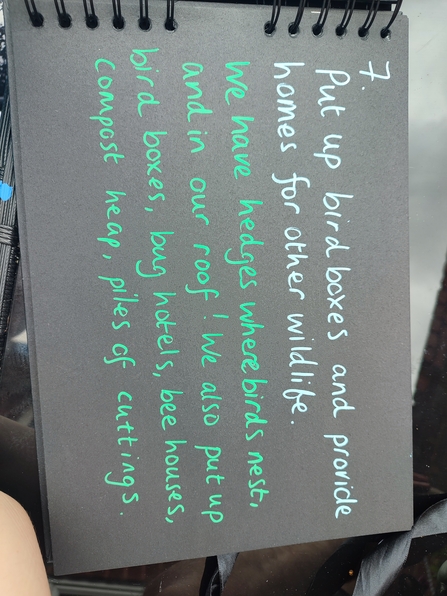 7.
Put up bird boxes and provide
homes for other wildlife.
We have hedges where birds nest,
and in our roof! We also put up
bird boxes, bug hotels, bee houses,
compost heap, piles of cuttings.